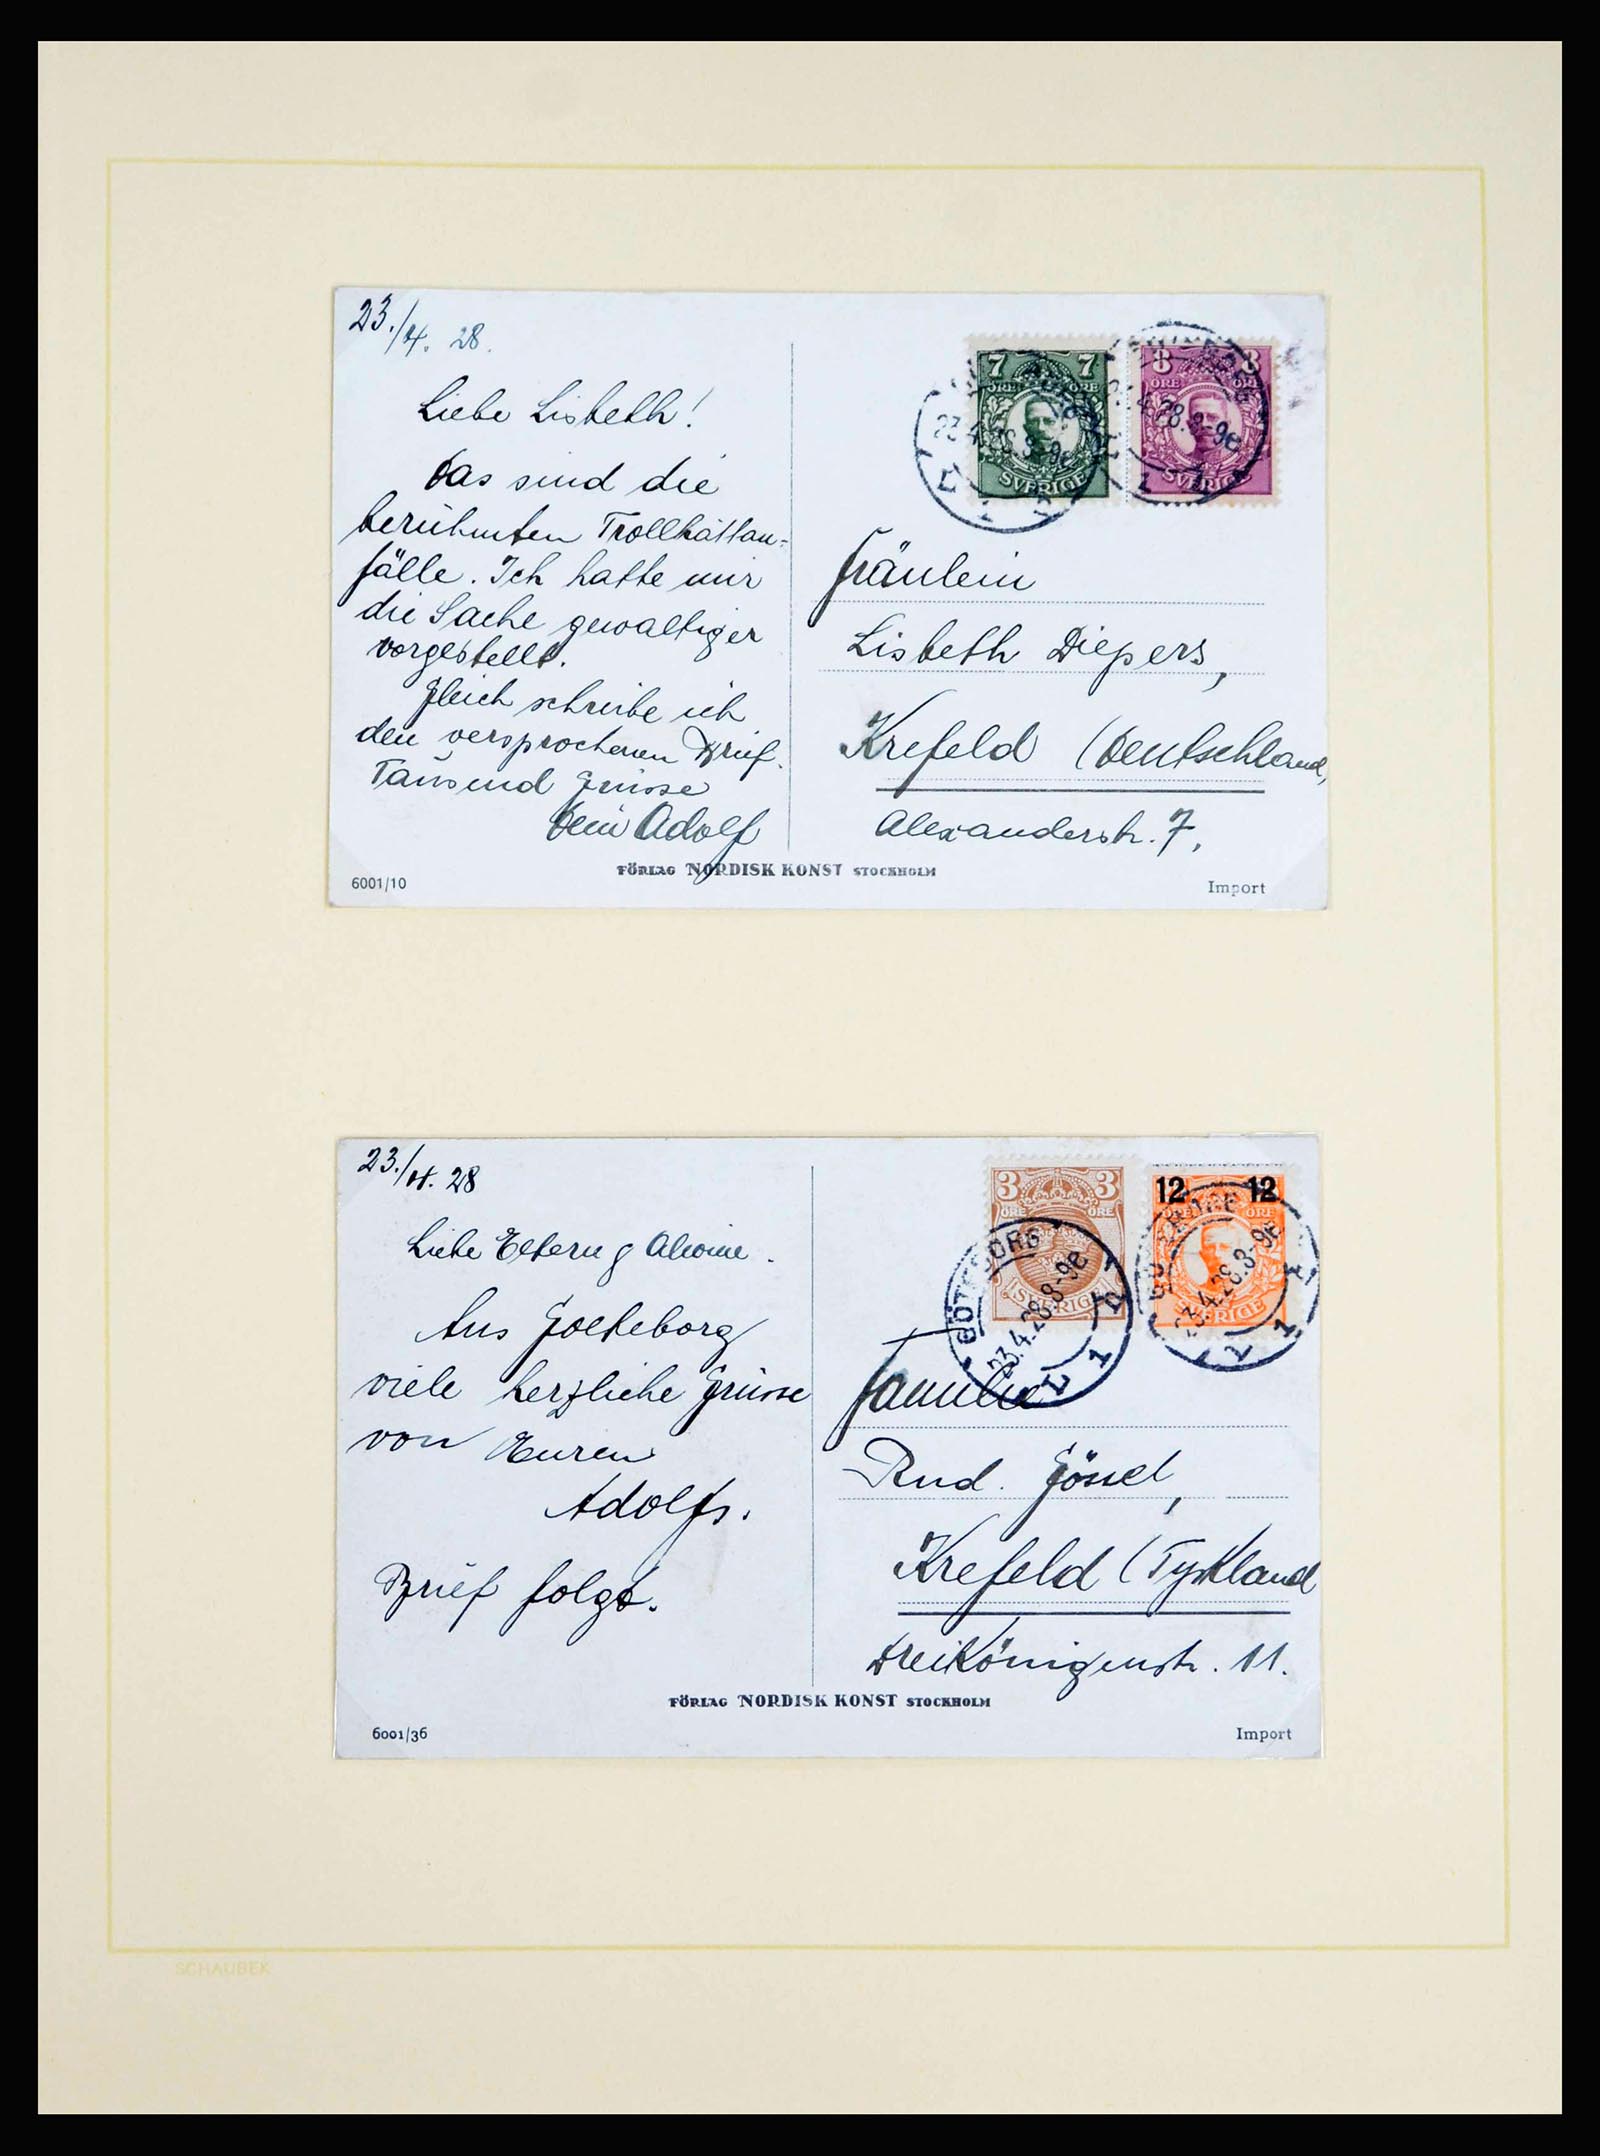 23./4. 28.
Liebe Lisbeth!
Das sind die
berühmten Trollhättan-
fälle. Ich hatte mir
die Sache gewaltiger
vorgestellt.
Gleich schreibe ich
den versprochenen Brief.
Tausend Grüsse
Dein Adolf
7 7
ÖRE ÖRE
SVERIGE
8 8
ÖRE ÖRE
SVERIGE
23.4.28.8-9e
23.4.28.8-9e
Fräulein
Lisbeth Diepers,
Krefeld (Deutschland,
Alexanderstr. 7,
FÖRLAG NORDISK KONST STOCKHOLM
6001/10
Import
23./4. 28
Liebe Eltern
Aus Goeteborg
viele herzliche Grüsse
von Euren
Adolfs.
Brief folgt.
3 3
ÖRE ÖRE
SVERIGE
12 12
ÖRE ÖRE
SVERIGE
GÖTEBORG
23.4.28.8-9e
LBR 1
GÖTEBORG
23.4.28.8-9e
Familie
Rud. Gössel,
Krefeld (Tyskland
Dreikönigenstr. 11.
FÖRLAG NORDISK KONST STOCKHOLM
6001/36
Import
SCHAUBEK